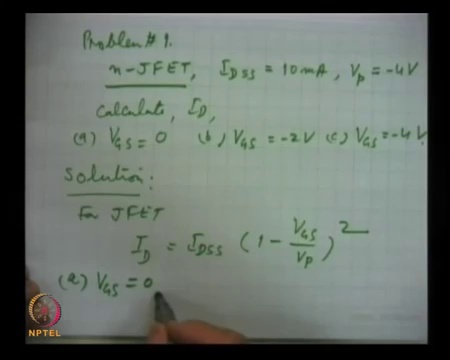 Problem # 1.
n-JFET, I_DSS = 10mA, V_p = -4V
Calculate, I_D,
(a) V_GS = 0 (b) V_GS = -2V (c) V_GS = -4V.
Solution:
For JFET
I_D = I_DSS (1 - V_GS/V_p)^2
(a) V_GS = 0
NPTEL